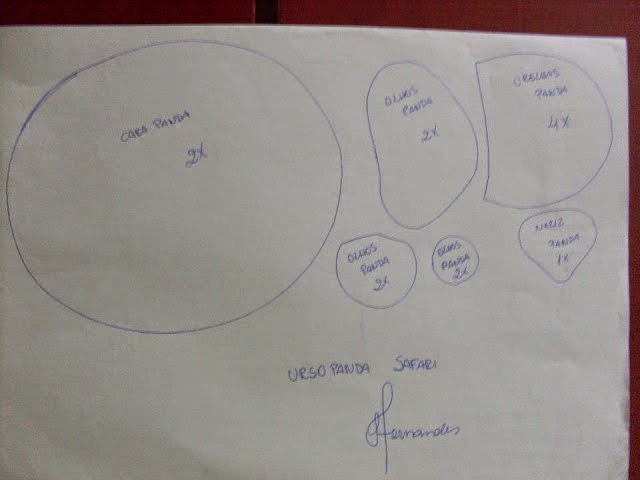 CARA PANDA
2X
OLHOS
PANDA
2X
ORELHAS
PANDA
4X
OLHOS
PANDA
2X
OLHOS
PANDA
2X
NARIZ
PANDA
1X
URSO PANDA SAFARI
Hernandes